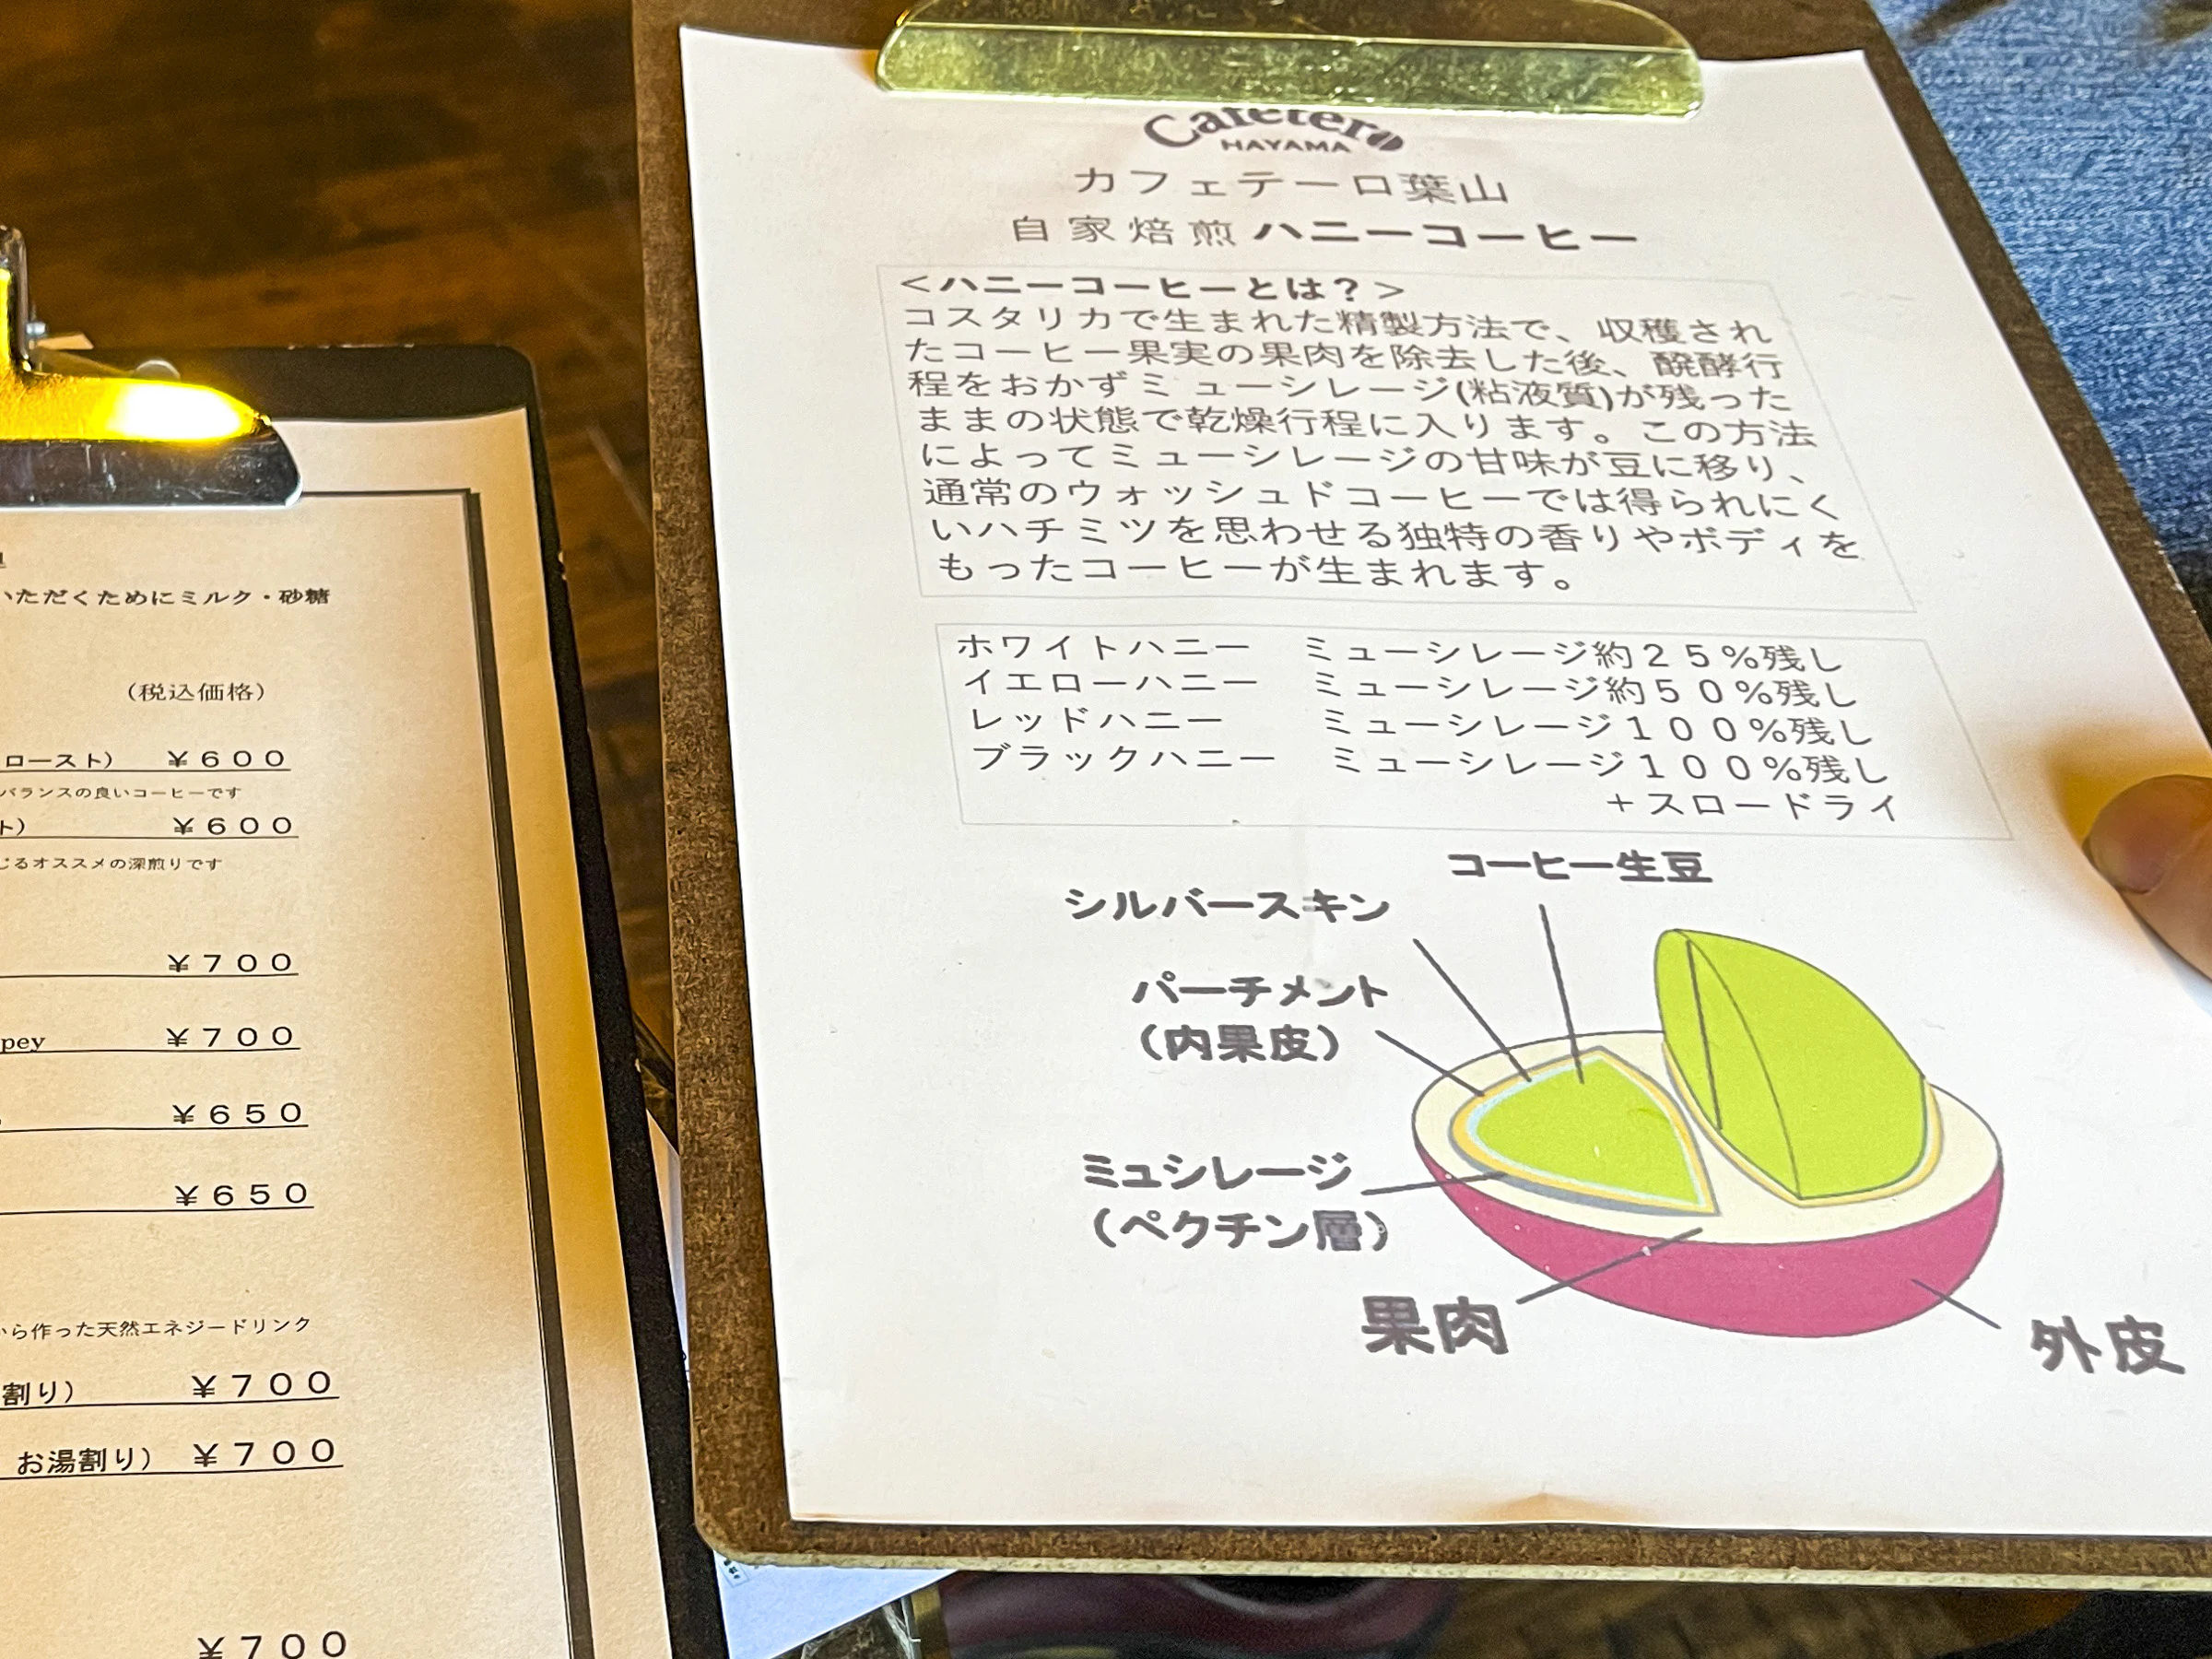 いただくためにミルク・砂糖
(税込価格)
ロースト) ￥６００
バランスの良いコーヒーです
ト) ￥６００
じるオススメの深煎りです
￥７００
pey ￥７００
￥６５０
￥６５０
から作った天然エネジードリンク
割り) ￥７００
お湯割り) ￥７００
￥７００
Cafetero
HAYAMA
カフェテーロ葉山
自家焙煎ハニーコーヒー
＜ハニーコーヒーとは？＞
コスタリカで生まれた精製方法で、収穫され
たコーヒー果実の果肉を除去した後、醗酵行
程をおかずミューシレージ(粘液質)が残った
ままの状態で乾燥行程に入ります。この方法
によってミューシレージの甘味が豆に移り、
通常のウォッシュドコーヒーでは得られにく
いハチミツを思わせる独特の香りやボディを
もったコーヒーが生まれます。
ホワイトハニー ミューシレージ約２５％残し
イエローハニー ミューシレージ約５０％残し
レッドハニー ミューシレージ１００％残し
ブラックハニー ミューシレージ１００％残し
＋スロードライ
コーヒー生豆
シルバースキン
パーチメント
(内果皮)
ミュシレージ
(ペクチン層)
果肉
外皮